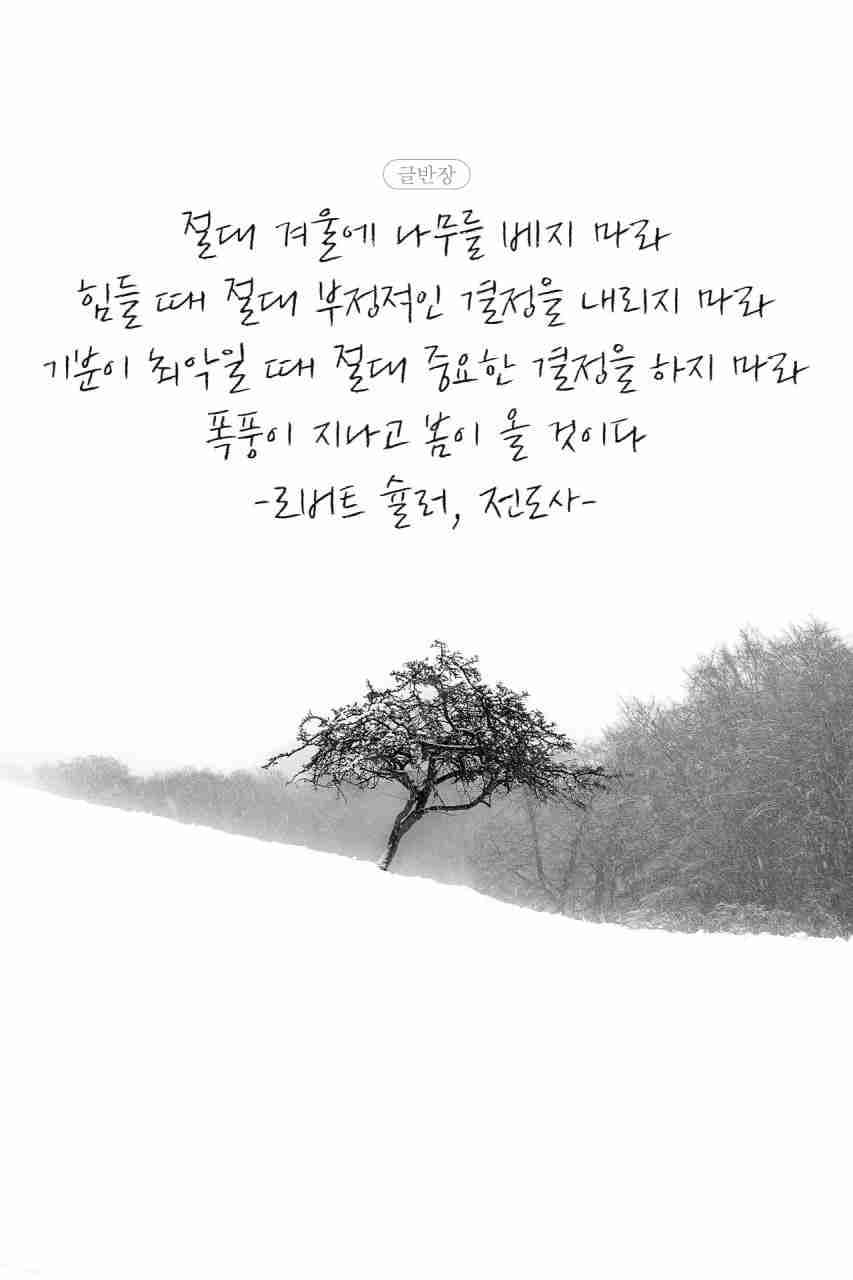 글반장
절대 겨울에 나무를 베지 마라
힘들 때 절대 부정적인 결정을 내리지 마라
기분이 최악일 때 절대 중요한 결정을 하지 마라
폭풍이 지나고 봄이 올 것이다
-로버트 슐러, 전도사-